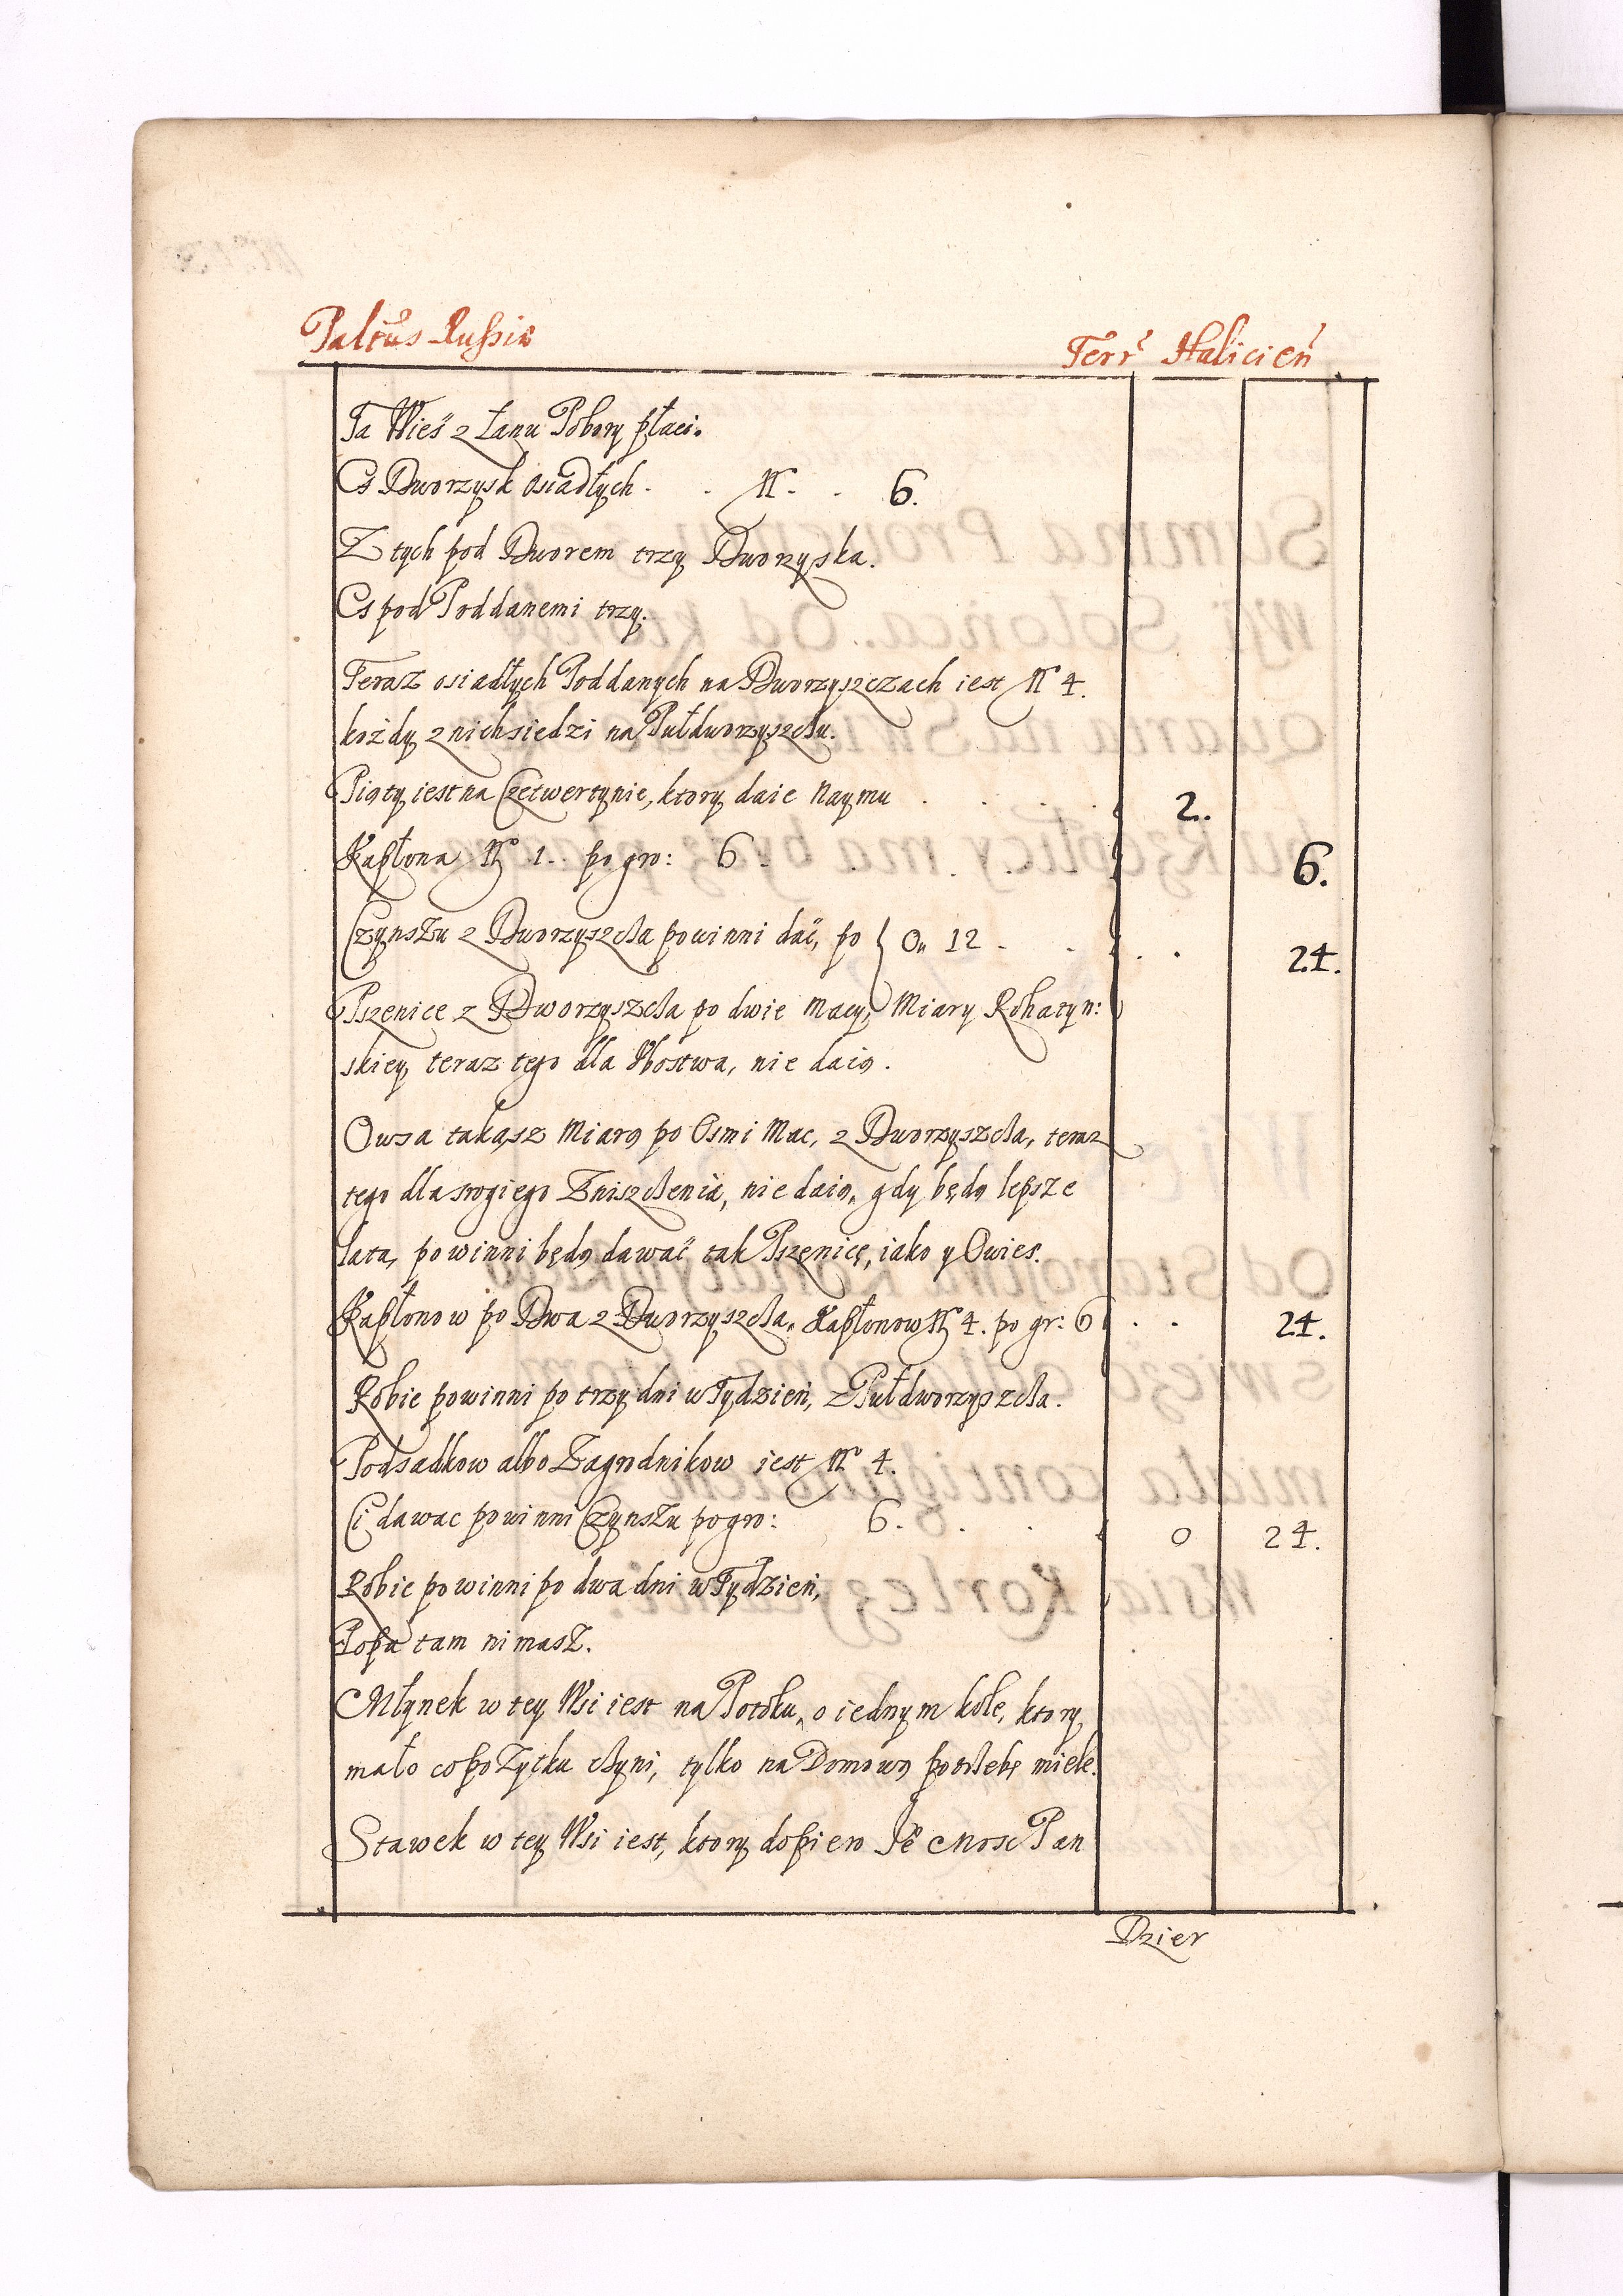 Paltus Russiæ Terr Halicień
Ta Wieś z Łanu Pobory płaci.
Cs Dworzysk osiadłych . . N . . 6.
Z tych pod Dworem trzy Dworzyska.
Cs pod Poddanemi trzy.
Teraz osiadłych Poddanych na Dworzyszczach iest N 4.
kożdy z nich siedzi na Pułdworzyszczu.
Piąty iest na Czetwertynie, ktory daie Naymu . . . . 2.
Kapłona N 1. po gro: 6 . . . . 6.
Czynszu z Dworzyszcza powinni dać, po O„ 12 . . . . 24.
Pszenice z Dworzyszcza po dwie Macy, Miary Rohatyn:
skiey, teraz tego dla Ubostwa, nie daią.
Owsa takąsz Miarą po Osmi Mac, z Dworzyszcza, teraz
tego dla srogiego Zniszczenia, nie daią, gdy będą lepsze
lata, powinni będą dawać tak Pszęnicę, iako y Owies.
Kapłonow po Dwa z Dworzyszcza, Kapłonow N 4. po gr: 6 . . 24.
Robic powinni po trzy dni w Tydzień, z Pułdworzyszcza.
Podsadkow albo Zagrodnikow iest N 4.
Ci dawac powinni Czynszu po gro: 6. . . . 0 24.
Robic powinni po dwa dni w Tydzień,
Popa tam ni masz.
Młynek w tey Wsi iest na Potoku, o iednym kole, ktory
mało co pożytku czyni, tylko na Domową potrzebę miele.
Stawek w tey Wsi iest, ktory dopiero Je Mosc Pan
Dzier